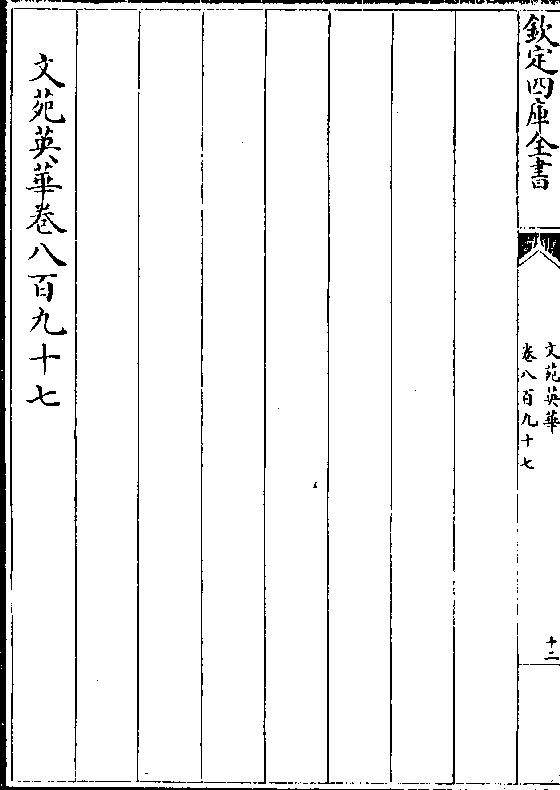 欽定四庫全書
文苑英華
卷八百九十七
十二
文苑英華卷八百九十七